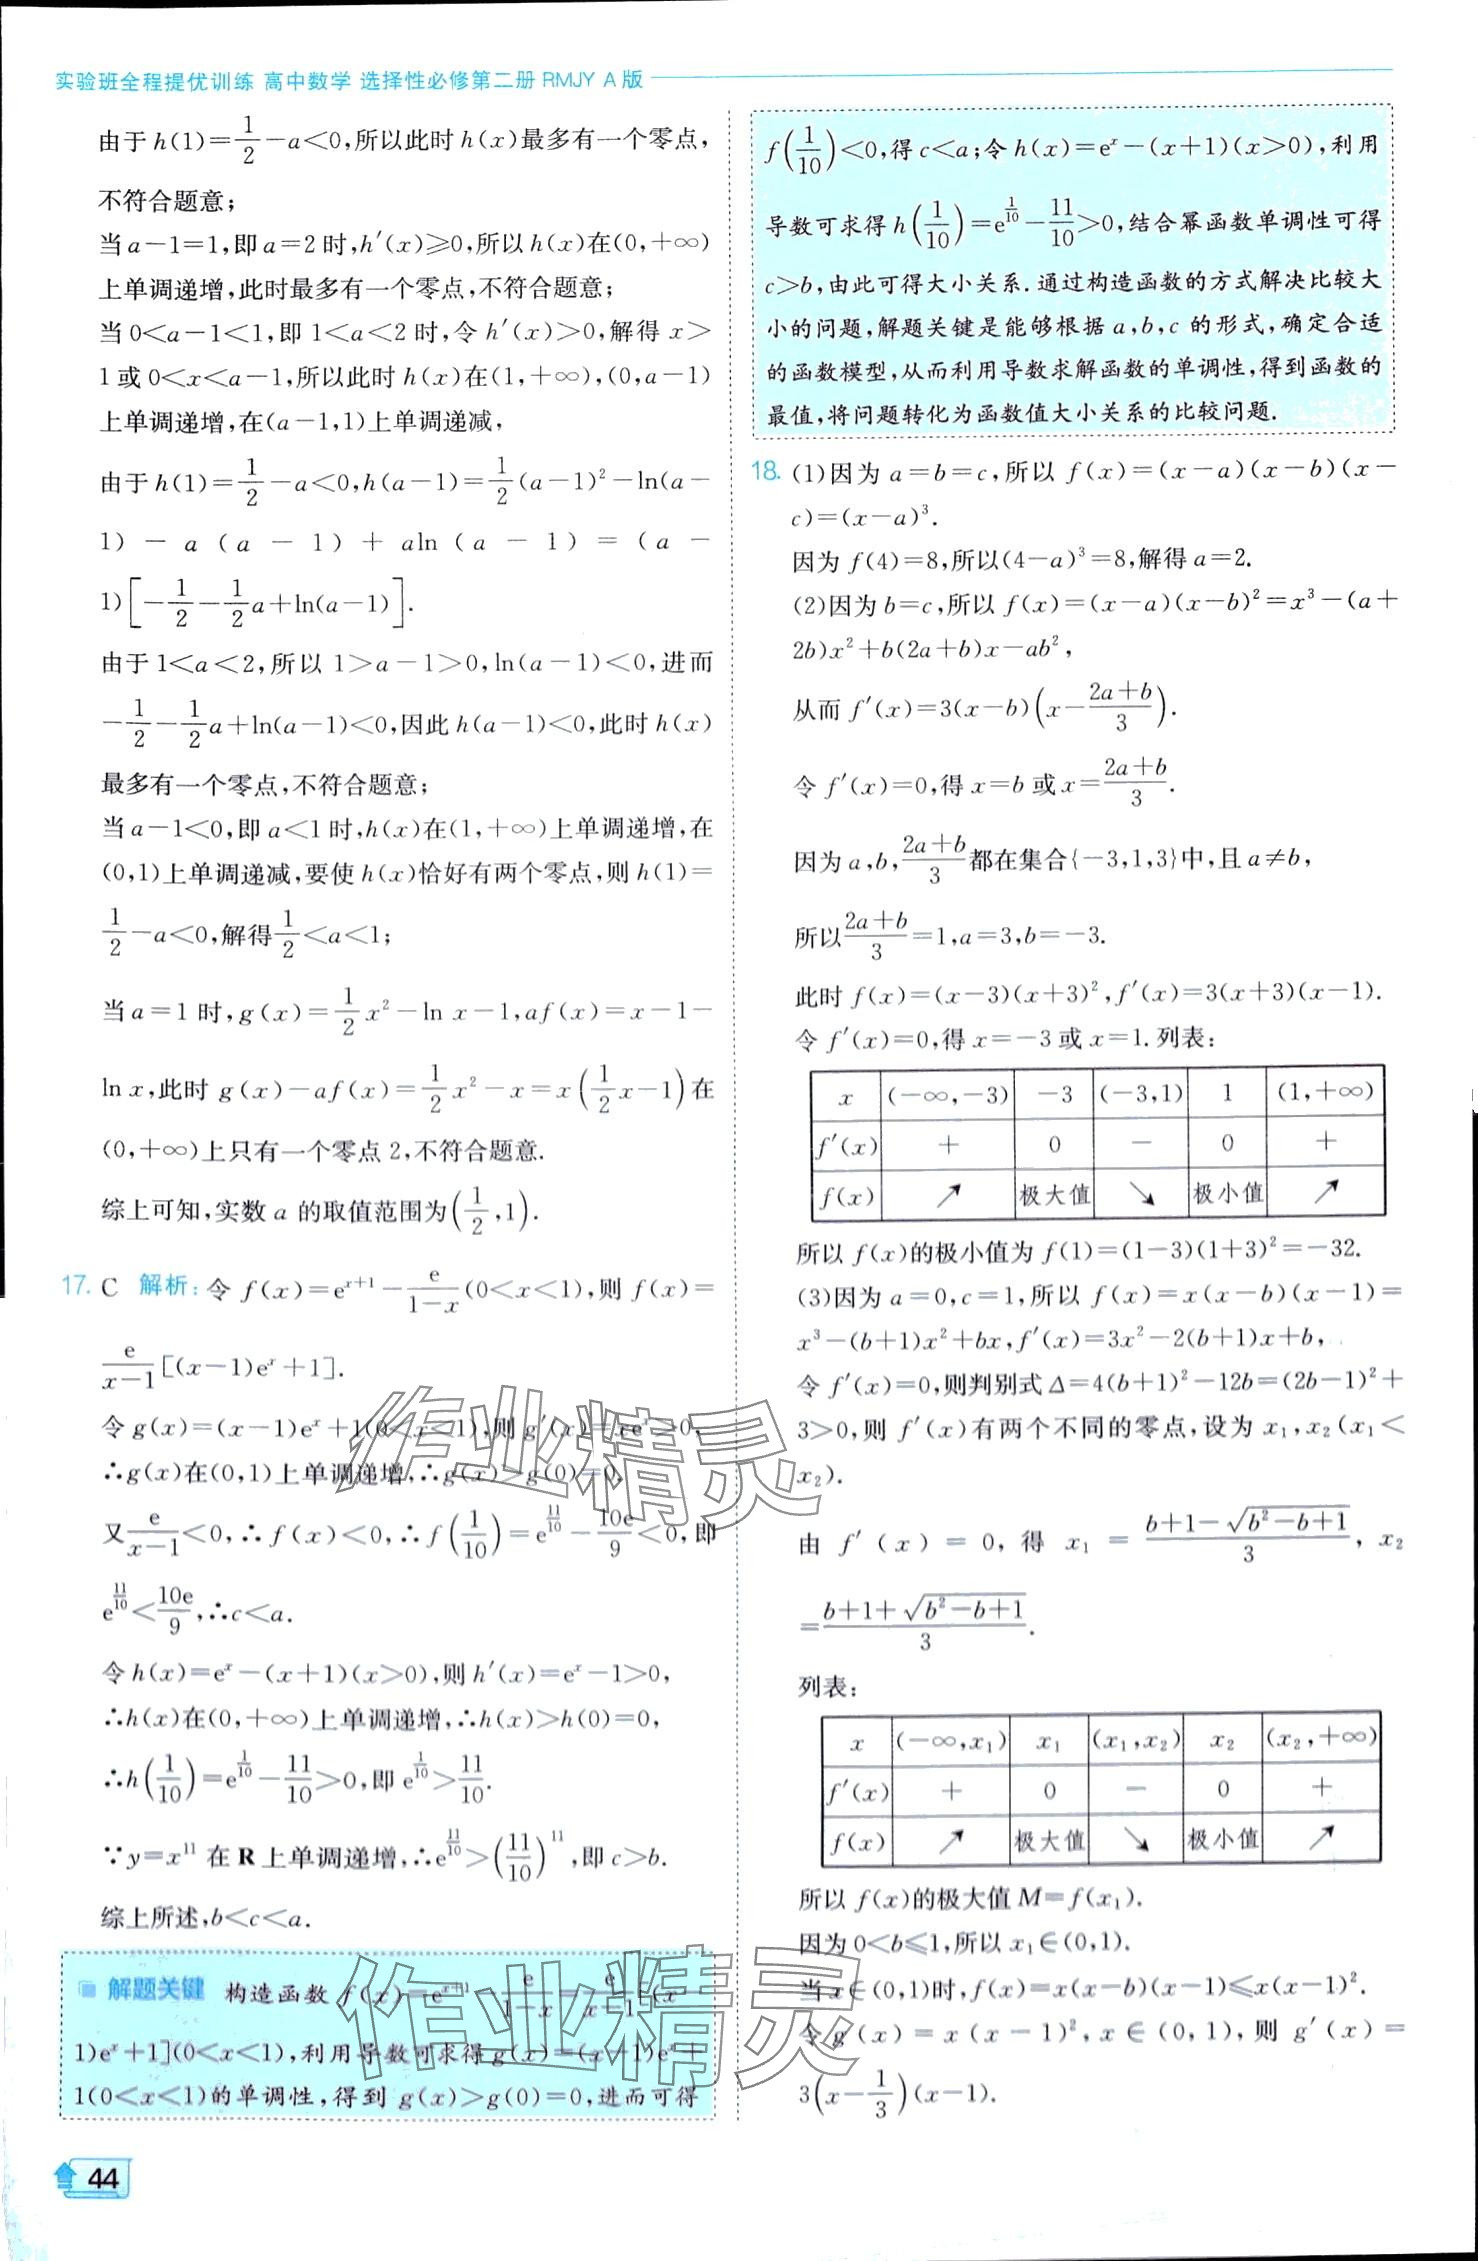 实验班全程提优训练 高中数学 选择性必修第二册 RMJY A 版
由于 h(1)=1/2-a<0,所以此时 h(x)最多有一个零点,
不符合题意;
当 a-1=1,即 a=2 时,h′(x)⩾0,所以 h(x)在(0,+∞)
上单调递增,此时最多有一个零点,不符合题意;
当 0<a-1<1,即 1<a<2 时,令 h′(x)>0,解得 x>
1 或 0<x<a-1,所以此时 h(x)在(1,+∞),(0,a-1)
上单调递增,在(a-1,1)上单调递减,
由于 h(1)=1/2-a<0,h(a-1)=1/2(a-1)²-ln(a-
1)-a(a-1)+aln(a-1)=(a-
1)[-1/2-1/2a+ln(a-1)].
由于 1<a<2,所以 1>a-1>0,ln(a-1)<0,进而
-1/2-1/2a+ln(a-1)<0,因此 h(a-1)<0,此时 h(x)
最多有一个零点,不符合题意;
当 a-1<0,即 a<1 时,h(x)在(1,+∞)上单调递增,在
(0,1)上单调递减,要使 h(x)恰好有两个零点,则 h(1)=
1/2-a<0,解得1/2<a<1;
当 a=1 时,g(x)=1/2x²-ln x-1,af(x)=x-1-
ln x,此时 g(x)-af(x)=1/2x²-x=x(1/2x-1)在
(0,+∞)上只有一个零点 2,不符合题意.
综上可知,实数 a 的取值范围为(1/2,1).
17. C 解析:令 f(x)=e^(x+1)-e/(1-x)(0<x<1),则 f(x)=
e/(x-1)[(x-1)eˣ+1].
令 g(x)=(x-1)eˣ+1(0<x<1),则 g′(x)=xeˣ>0,
∴g(x)在(0,1)上单调递增,∴g(x)>g(0)=0.
又e/(x-1)<0,∴f(x)<0,∴f(1/10)=e^(11/10)-10e/9<0,即
e^(11/10)<10e/9,∴c<a.
令 h(x)=eˣ-(x+1)(x>0),则 h′(x)=eˣ-1>0,
∴h(x)在(0,+∞)上单调递增,∴h(x)>h(0)=0,
∴h(1/10)=e^(1/10)-11/10>0,即 e^(1/10)>11/10.
∵y=x¹¹ 在 R 上单调递增,∴e^(11/10)>(11/10)¹¹,即 c>b.
综上所述,b<c<a.
解题关键 构造函数 f(x)=e^(x+1)-e/(1-x)=e/(x-1)[(x-
1)eˣ+1](0<x<1),利用导数可求得 g(x)=(x-1)eˣ+
1(0<x<1)的单调性,得到 g(x)>g(0)=0,进而可得
44
f(1/10)<0,得 c<a;令 h(x)=eˣ-(x+1)(x>0),利用
导数可求得 h(1/10)=e^(1/10)-11/10>0,结合幂函数单调性可得
c>b,由此可得大小关系.通过构造函数的方式解决比较大
小的问题,解题关键是能够根据 a,b,c 的形式,确定合适
的函数模型,从而利用导数求解函数的单调性,得到函数的
最值,将问题转化为函数值大小关系的比较问题.
18. (1)因为 a=b=c,所以 f(x)=(x-a)(x-b)(x-
c)=(x-a)³.
因为 f(4)=8,所以(4-a)³=8,解得 a=2.
(2)因为 b=c,所以 f(x)=(x-a)(x-b)²=x³-(a+
2b)x²+b(2a+b)x-ab²,
从而 f′(x)=3(x-b)(x-(2a+b)/3).
令 f′(x)=0,得 x=b 或 x=(2a+b)/3.
因为 a,b,(2a+b)/3都在集合{-3,1,3}中,且 a≠b,
所以(2a+b)/3=1,a=3,b=-3.
此时 f(x)=(x-3)(x+3)²,f′(x)=3(x+3)(x-1).
令 f′(x)=0,得 x=-3 或 x=1.列表:
x (-∞,-3) -3 (-3,1) 1 (1,+∞)
f′(x) + 0 - 0 +
f(x) ↗ 极大值 ↘ 极小值 ↗
所以 f(x)的极小值为 f(1)=(1-3)(1+3)²=-32.
(3)因为 a=0,c=1,所以 f(x)=x(x-b)(x-1)=
x³-(b+1)x²+bx,f′(x)=3x²-2(b+1)x+b,
令 f′(x)=0,则判别式 Δ=4(b+1)²-12b=(2b-1)²+
3>0,则 f′(x)有两个不同的零点,设为 x₁,x₂(x₁<
x₂).
由 f′(x)=0,得 x₁=(b+1-√(b²-b+1))/3,x₂
=(b+1+√(b²-b+1))/3.
列表:
x (-∞,x₁) x₁ (x₁,x₂) x₂ (x₂,+∞)
f′(x) + 0 - 0 +
f(x) ↗ 极大值 ↘ 极小值 ↗
所以 f(x)的极大值 M=f(x₁).
因为 0<b⩽1,所以 x₁∈(0,1).
当 x∈(0,1)时,f(x)=x(x-b)(x-1)⩽x(x-1)².
令 g′(x)=x(x-1)²,x∈(0,1),则 g′(x)=
3(x-1/3)(x-1).
作业精灵
作业精灵